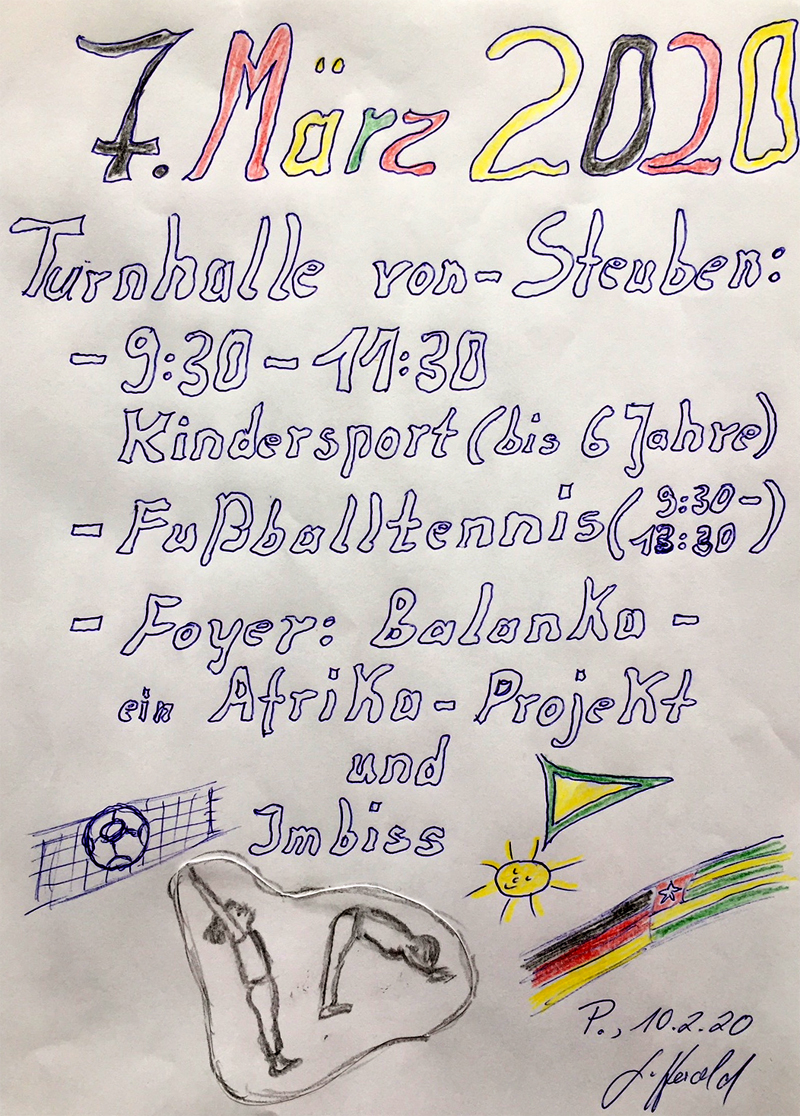 7. März 2020
Turnhalle von-Steuben:
- 9:30 - 11:30
Kindersport (bis 6 Jahre)
- Fußballtennis (9:30-
13:30)
- Foyer: Balanka -
ein Afrika-Projekt
und
Imbiss
P., 10.2.20